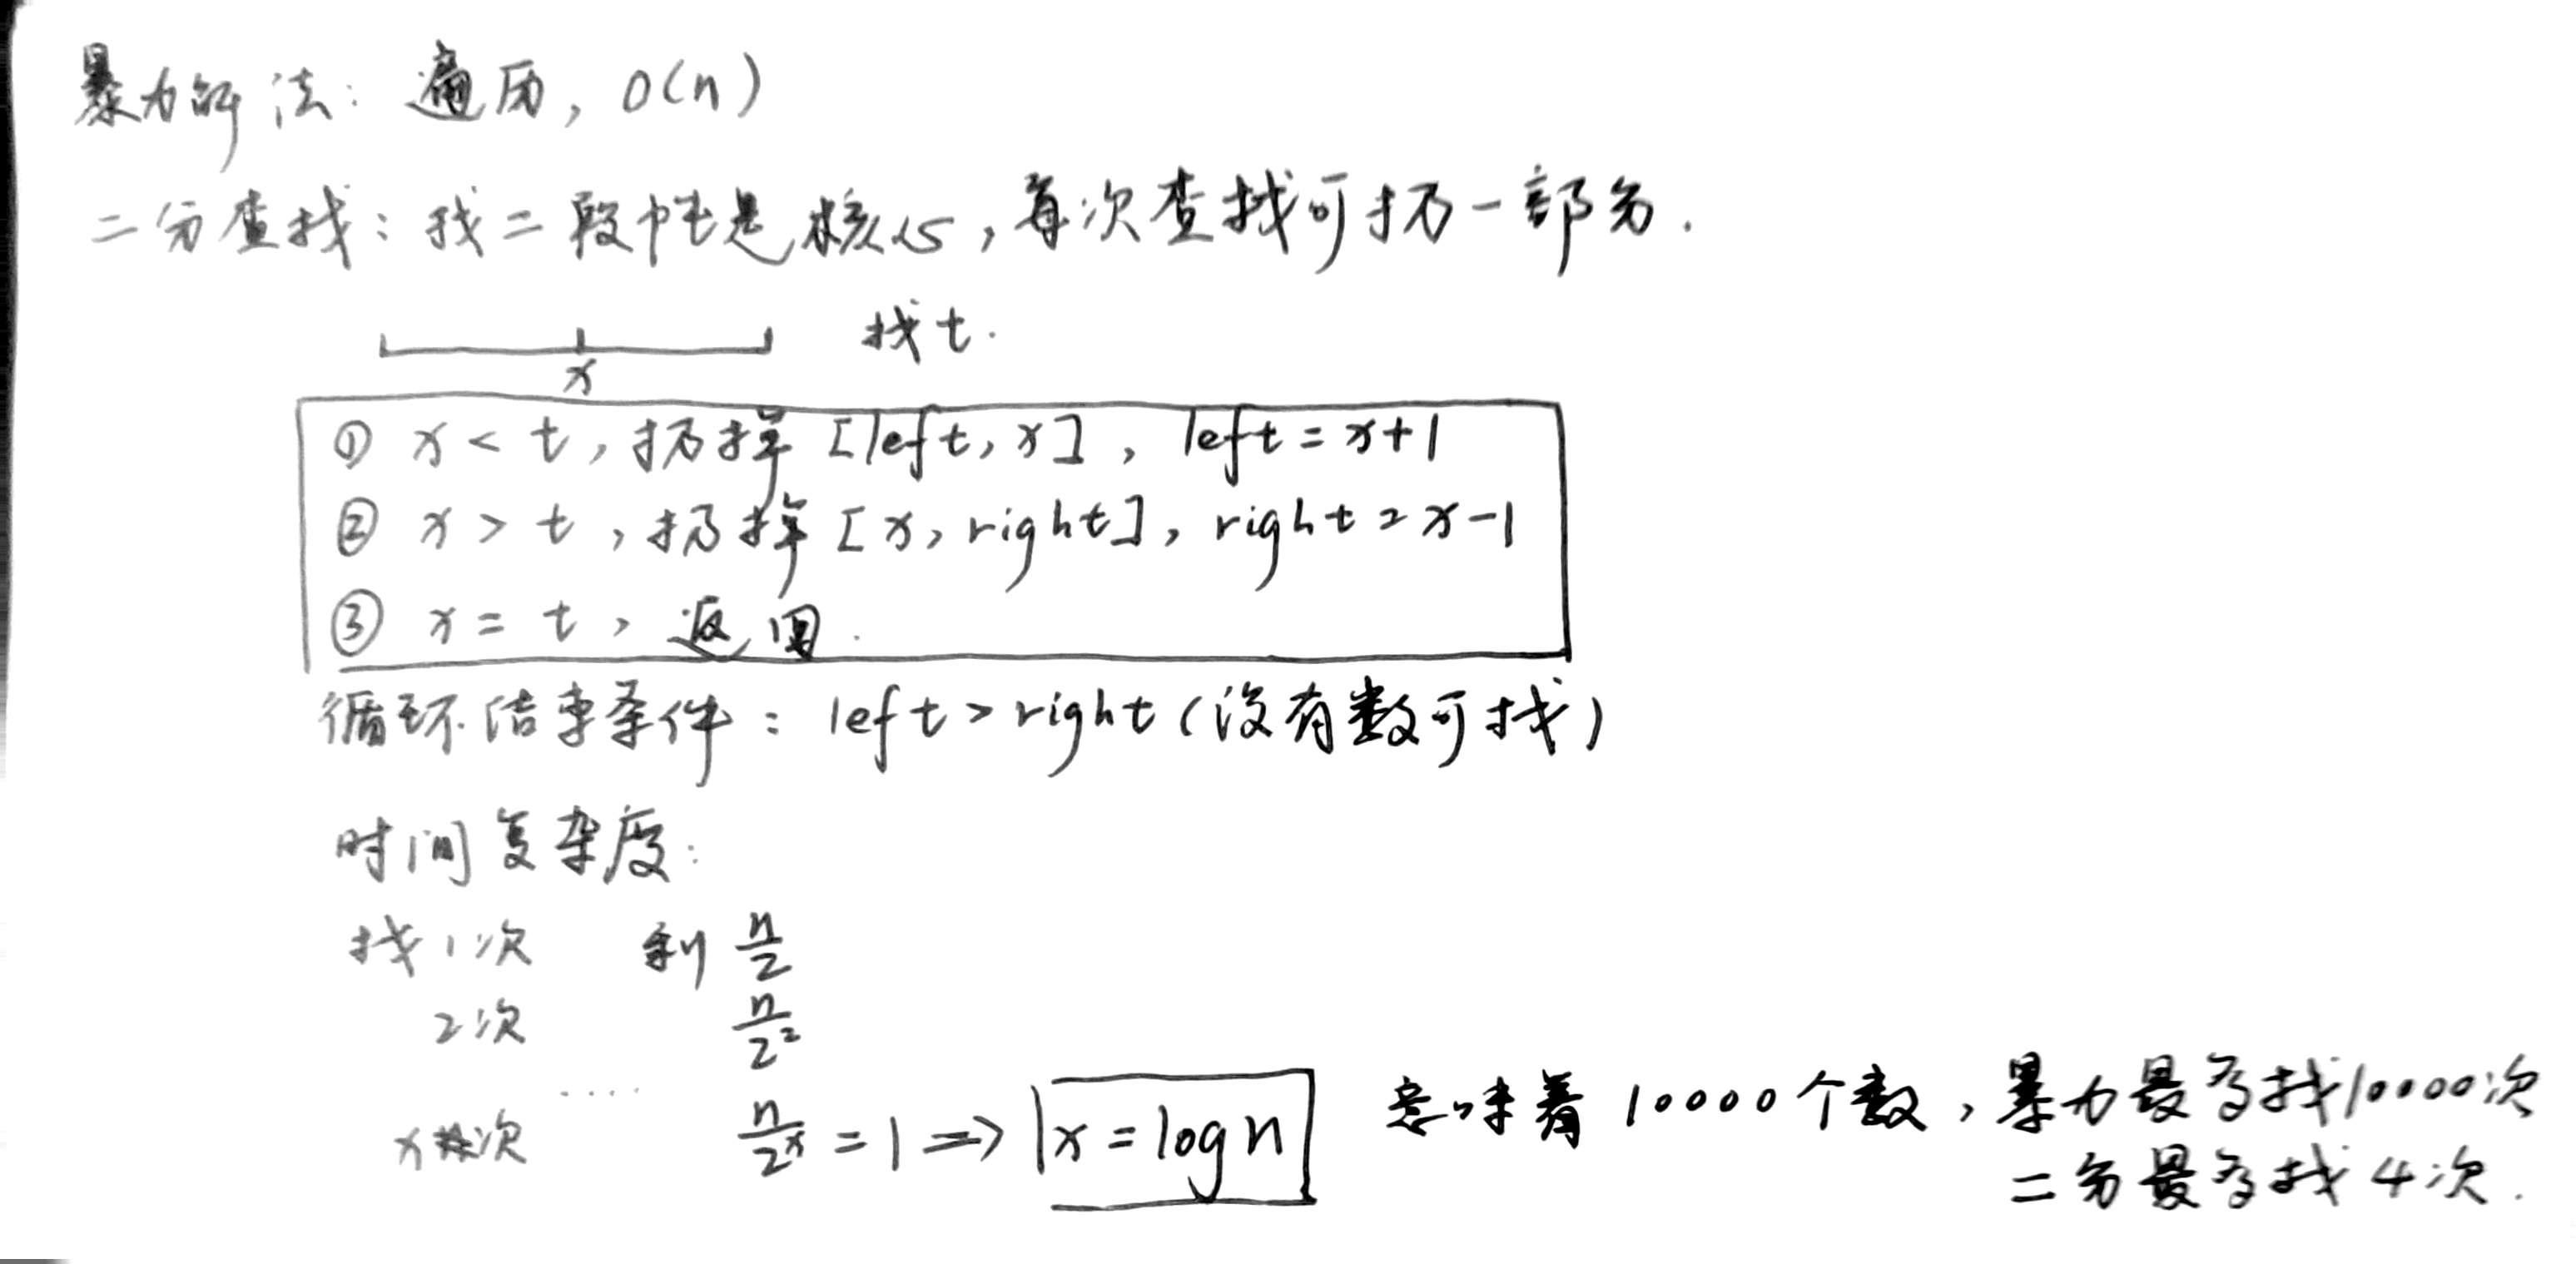 暴力解法：遍历，O(n)
二分查找：找二段性是核心，每次查找可扔一部分.
找t.
x
① x < t，扔掉 [left, x]，left = x+1
② x > t，扔掉 [x, right]，right = x-1
③ x = t，返回.
循环结束条件：left > right（没有数可找）
时间复杂度：
找1次 剩 n/2
2次 n/2²
....
x次 n/2ˣ = 1 => x = log n
意味着 10000个数，暴力最多找10000次
二分最多找 4次.